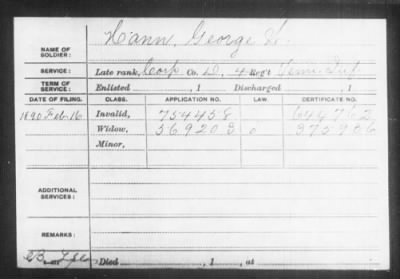 NAME OF SOLDIER: Hann, George W.
SERVICE: Late rank, Corp Co. D, 4 Reg't Tenn. Inf.
TERM OF SERVICE: Enlisted , 1 Discharged , 1
DATE OF FILING. CLASS. APPLICATION NO. LAW. CERTIFICATE NO.
1890 Feb. 16 Invalid, 754458 644762
Widow, 569203
Minor,
ADDITIONAL SERVICES:
REMARKS:
Died , 1 , at